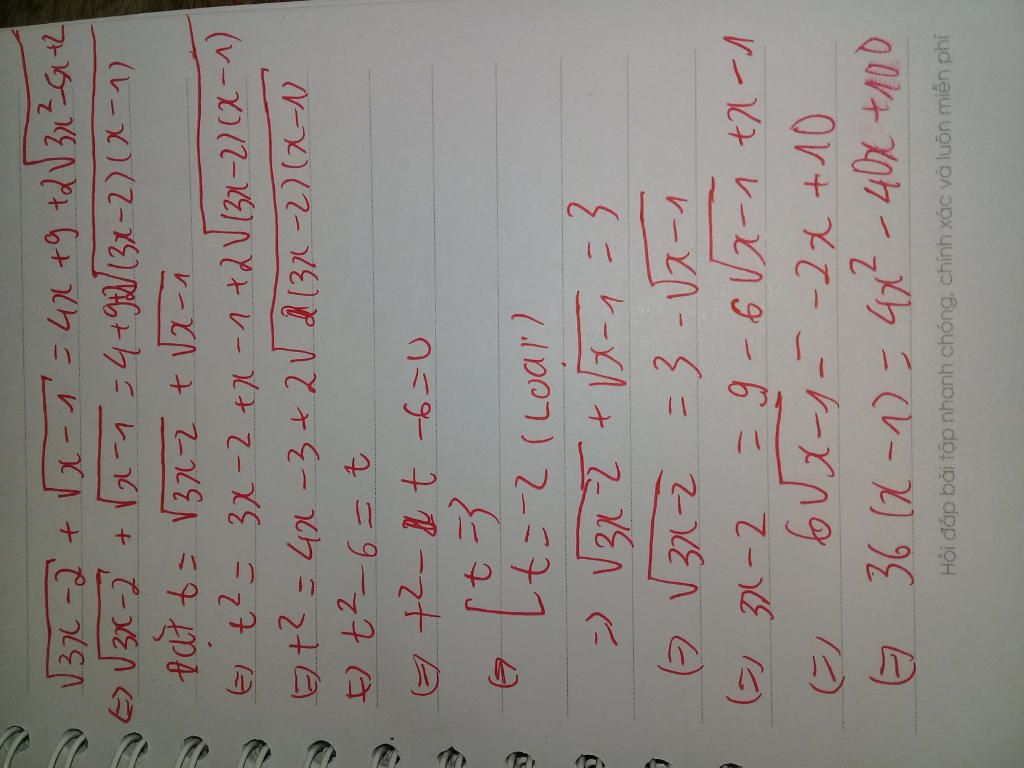 √(3x-2) + √(x-1) = 4x + 9 + 2√(3x²-5x+2)
(=) √(3x-2) + √(x-1) = 4+9+2√((3x-2)(x-1))
Đặt t = √(3x-2) + √(x-1)
(=) t² = 3x-2 +x-1+2√((3x-2)(x-1))
(=) t² = 4x-3+2√((3x-2)(x-1))
(=) t²-6=t
(=) t²-t-6=0
(=) [t=3
[t=-2 (Loại)
=) √(3x-2) + √(x-1) = 3
(=) √(3x-2) = 3-√(x-1)
(=) 3x-2 = 9-6√(x-1) +x-1
(=) 6√(x-1) = -2x+10
(=) 36(x-1) = 4x²-40x+100
Hỏi đáp bài tập nhanh chóng, chính xác và luôn miễn phí